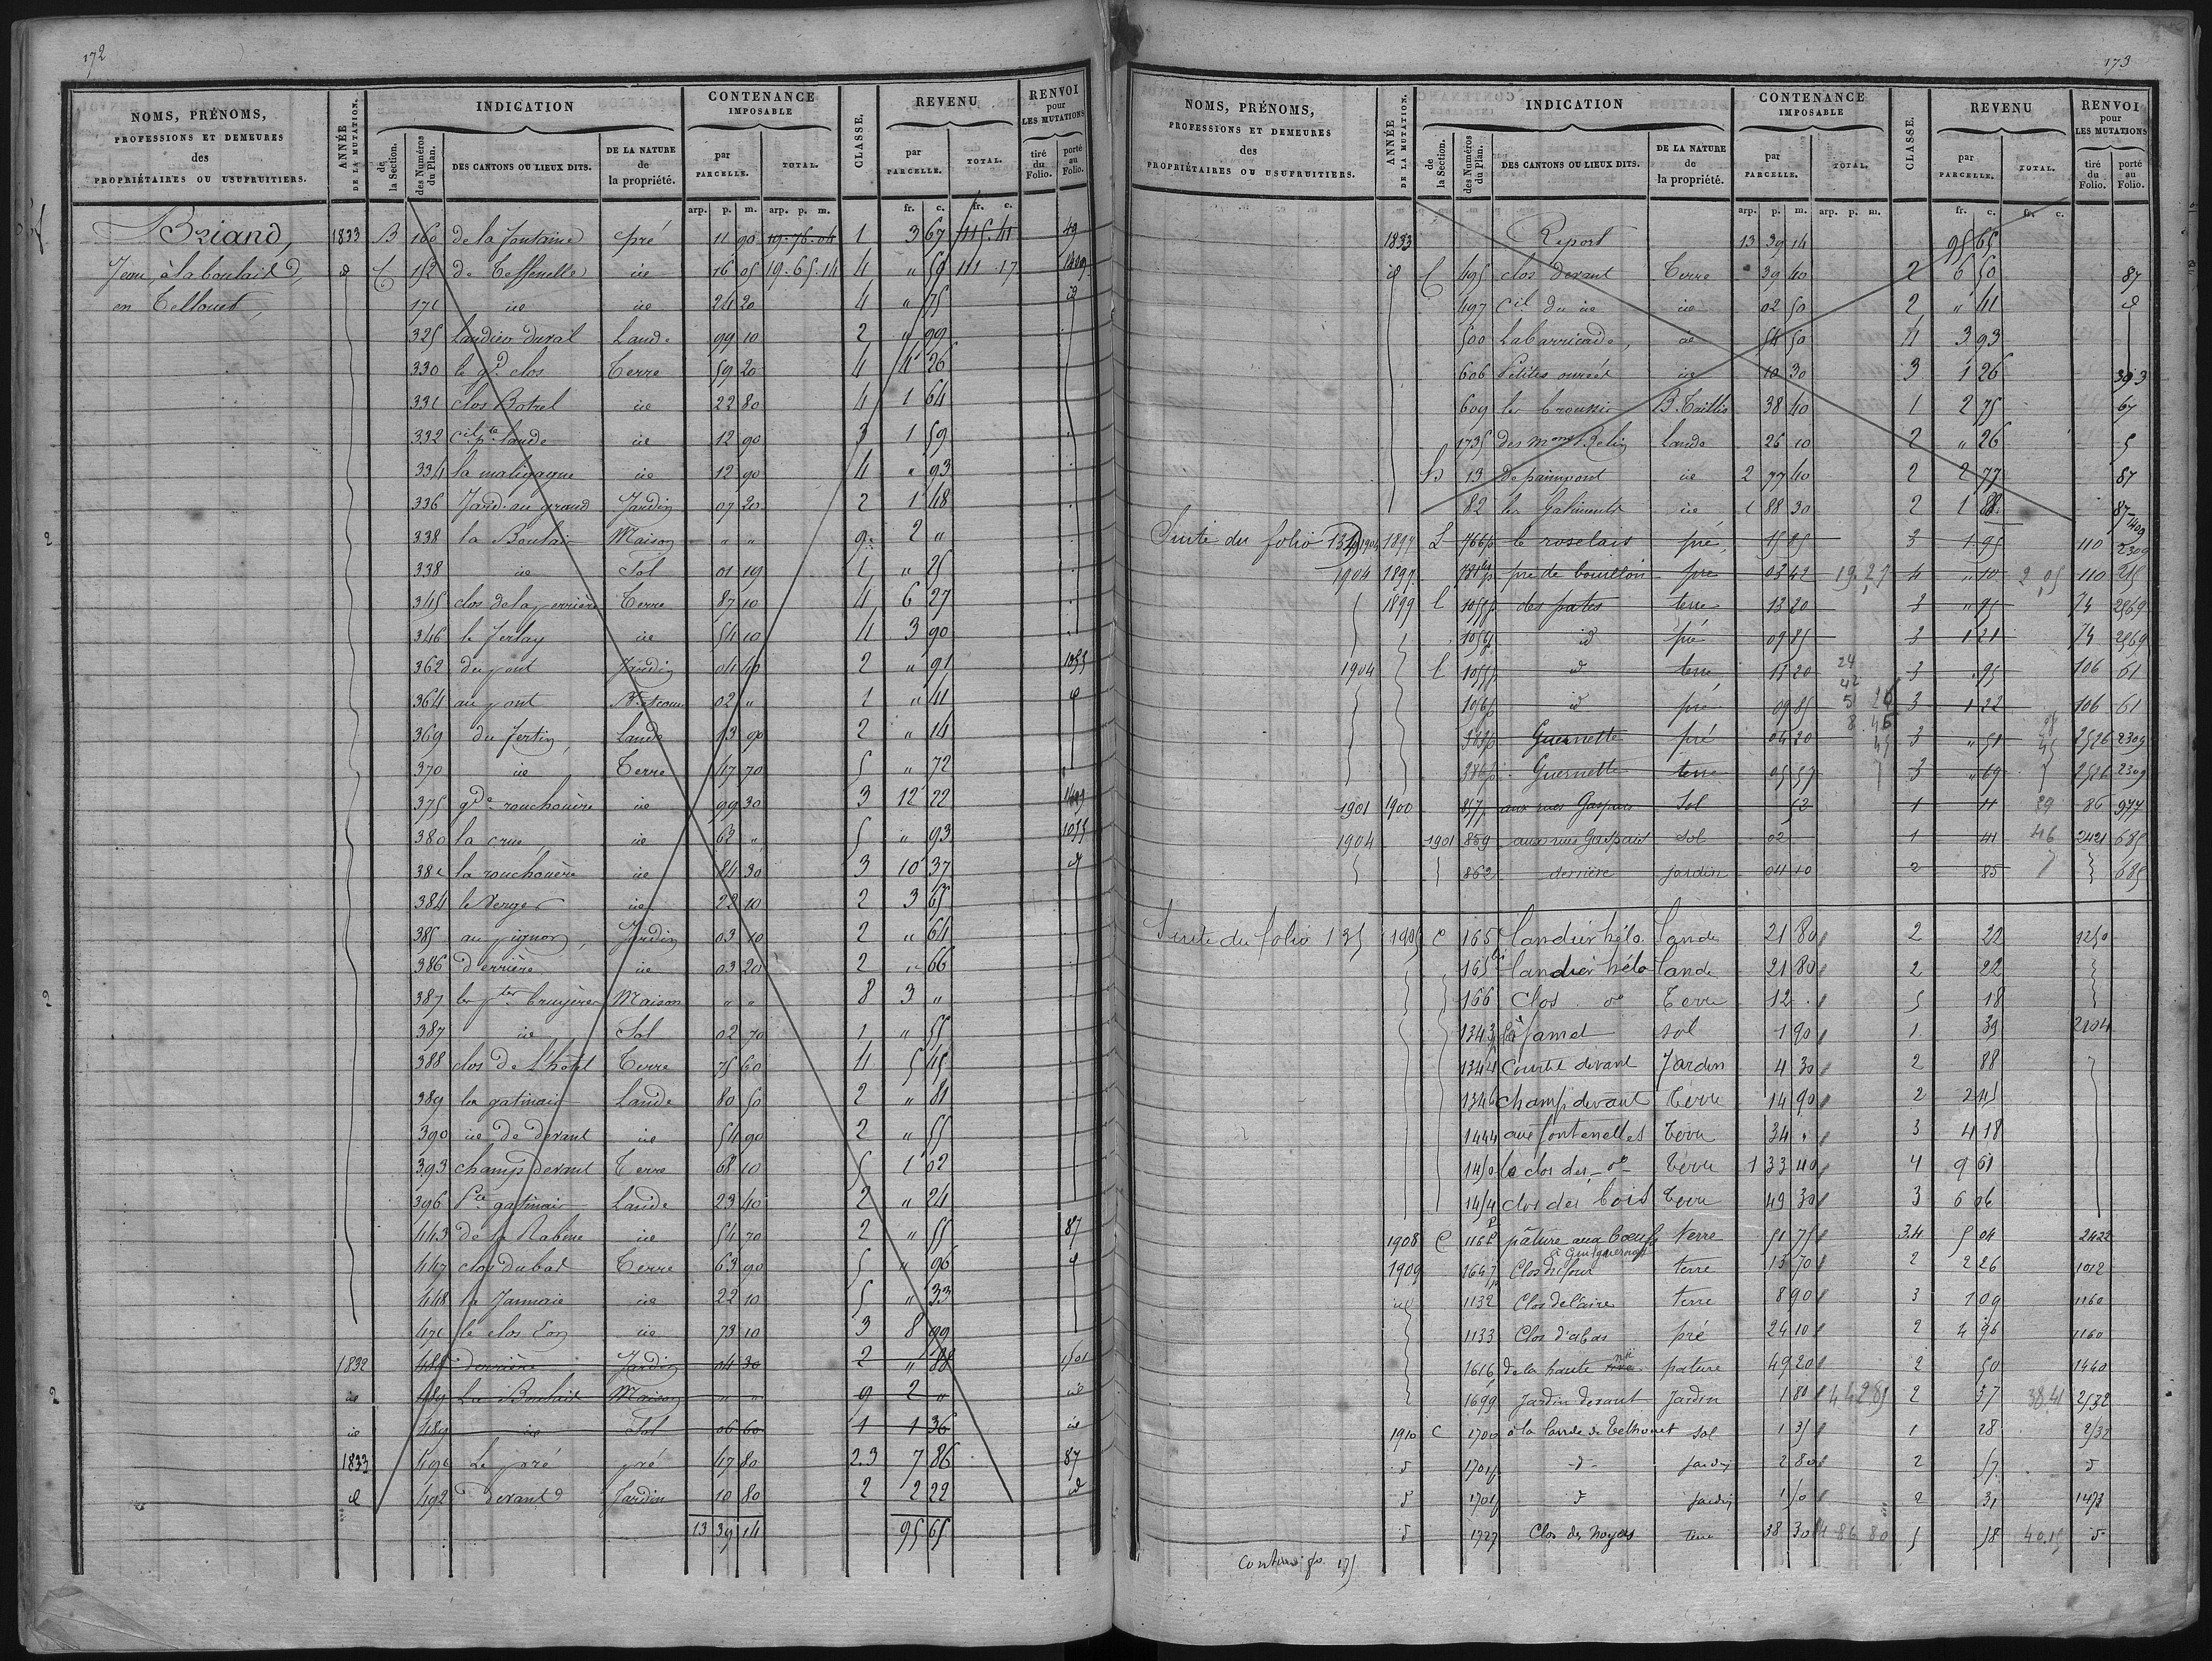 172
NOMS, PRÉNOMS, PROFESSIONS ET DEMEURES des PROPRIÉTAIRES OU USUFRUITIERS.
ANNÉE DE LA MUTATION.
INDICATION
de la Section.
des Numéros du Plan.
DES CANTONS OU LIEUX DITS.
DE LA NATURE de la propriété.
CONTENANCE IMPOSABLE
par PARCELLE.
TOTAL.
CLASSE.
REVENU
par PARCELLE.
TOTAL.
RENVOI pour LES MUTATIONS
tiré du Folio.
porté au Folio.
arp. p. m. arp. p. m. fr. c. fr. c.
Briand, 1833 B 160 de la fontaine pré 11 90 19.76.04 1 3 67 115.41 49
Jean, à la boulais id C 152 de id 16 05 19.65.14 4 " 59 111.17
en Telhouet, 171 id id 24 20 4 " 75 id
325 Landier duval Lande 99 10 2 " 99
330 le gd clos Terre 59 20 4 4 26
331 clos Botrel id 22 80 4 1 64
332 cil pte lande id 12 90 3 1 59
334 la maligagne id 12 90 4 " 93
336 Jard. au grand Jardin 07 20 2 1 48
338 la Boulais Maison " " 9e 2 "
338 id Sol 01 19 1 " 25
345 clos de la perriere Terre 87 10 4 6 27
346 le ferlay id 54 10 4 3 90
362 du pont Jardin 04 40 2 " 91 1055
364 au pont 02 " 1 " 41 id
369 du fertin, Lande 13 90 2 " 14
370 id Terre 47 70 5 " 72
375 gde rouchouère id 99 30 3 12 22
380 la crue, id 62 " 5 " 93 1055
381 la rouchouère id 84 30 3 10 37 id
384 le Verger id 22 10 2 3 65
385 au pignon, Jardin 03 10 2 " 64
386 derrière id 03 20 2 " 66
387 les ptes bruyères Maison " " 8 3 "
387 id Sol 02 70 1 " 55
388 clos de l'hotel Terre 75 60 4 5 45
389 les gatinais Lande 80 50 2 " 81
390 id de devant id 54 90 2 " 55
393 champ devant Terre 68 10 5 1 02
396 Pte gatinais Lande 23 40 2 " 24
443 de la Rabine id 54 70 2 " 55 87
447 clos du bas Terre 63 90 5 " 96 id
448 la Jannaie id 22 10 5 " 33
471 le clos Eon id 73 10 3 8 99
1832 488 derrière Jardin 04 30 2 " 88 1501
id 489 La Boulais Maison " " 9 2 " id
id 489 id Sol 06 60 1 1 36 id
1833 491 Le pré pré 47 80 2.3 7 86 87
id 492 devant Jardin 10 80 2 2 22 id
13 39 14 95 65
173
NOMS, PRÉNOMS, PROFESSIONS ET DEMEURES des PROPRIÉTAIRES OU USUFRUITIERS.
ANNÉE DE LA MUTATION.
INDICATION
de la Section.
des Numéros du Plan.
DES CANTONS OU LIEUX DITS.
DE LA NATURE de la propriété.
CONTENANCE IMPOSABLE
par PARCELLE.
TOTAL.
CLASSE.
REVENU
par PARCELLE.
TOTAL.
RENVOI pour LES MUTATIONS
tiré du Folio.
porté au Folio.
arp. p. m. arp. p. m. fr. c. fr. c.
1833 Report 13 39 14 95 65
id C 495 clos devant Terre 39 40 2 6 50 87
497 cil du id id 02 50 2 " 41 id
500 La barricade, id 54 50 4 3 93
606 Petites id 10 30 3 1 26 393
609 les broussis B. Taillis 38 40 1 2 75 67
1735 des lande 26 10 2 " 26 5
h 13 de paimpont id 2 77 40 2 2 77 87
82 les Gatiments id 1 88 30 2 1 88 87
Suite du folio 135 1904 1897 L 766p le roselais pré, 15 85 3 1 95 110 2309
1904 1897 781p pré de bouillon pré 03 42 19.27 4 " 10 2,05 110 215
1899 C 1055p des patis terre 13 20 3 " 95 74 2569
1056p id pré 09 85 3 1 21 74 2569
1904 C 1055p id terre 13 20 3 .95 106 61
1056p id pré 09 85 3 1 22 106 61
383p Guernette pré 04 20 3 " 51 2526 2309
386p Guernette terre 05 57 3 " 69 2526 2309
1901 1900 857p aux rues Gaspais Sol 52 1 11 29 86 977
1904 1901 859 aux rues Gaspais sol 02 1 41 46 2421 685
862 derrière jardin 04 10 2 85 685
Suite du folio 135 1905 C 165 landier hélo Lande 21 80 2 22 1250
165bis landier hélo lande 21 80 2 22
166 Clos do Terre 12 . 5 18
1343p sol 1 90 1 39 2204
1344 Courtil devant Jardin 4 30 2 88
1346 champ devant terre 14 90 2 2 45
1444 aux fontenelles terre 34 . 3 4 18
1450 le clos des do terre 1 33 40 4 9 61
1454 clos des bois terre 49 30 3 6 06
1908 C 1161p pâture aux boeufs terre 51 75 3.4 5 04 2422
1909 1647p Clos du four terre 13 70 2 2 26 1012
id 1132 Clos de l'aire terre 8 90 3 1 09 1160
1133 Clos d'abas pré 24 10 2 4 96 1160
1616 de la haute pature 49 20 2 50 1440
1699 Jardin devant Jardin 1 80 4 42 85 2 37 38.41 2532
1910 C 1700 à la lande de Telhouet sol 1 35 1 28 2532
d 1701p -d- jardin 2 80 2 57 d
d 1701p d jardin 1 50 2 31 1473
d 1727 Clos des noyers terre 38 30 4 86 80 5 58 40.15 d
Continué fo 175